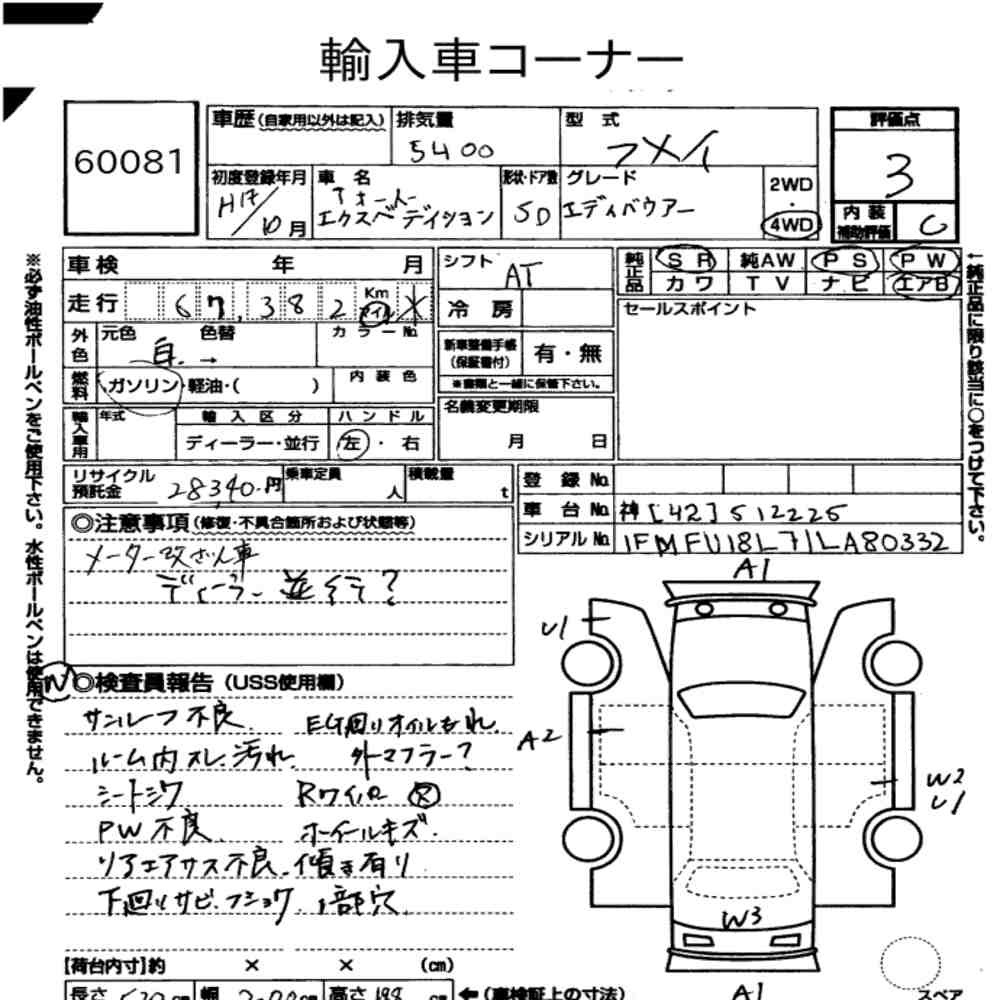 輸入車コーナー
60081
車歴 (自家用以外は記入)
排気量
5400
型式
フメイ
評価点
3
内装補助評価 C
初度登録年月
H17/10月
車名
フォード
エクスペディション
形状・ドア数
5D
グレード
エディバウアー
2WD
・
4WD
車検 年 月
走行 67,382 Km マイル ✕
外色 元色 色替 カラーNo.
白 →
燃料 ガソリン・軽油・( ) 内装色
輸入車用 年式 輸入区分 ハンドル
ディーラー・並行 左・右
シフト AT
冷房
新車整備手帳(保証書付) 有・無
※書類と一緒に保管下さい。
名義変更期限
月 日
純正品 SR 純AW PS PW
カワ TV ナビ エアB
セールスポイント
リサイクル預託金 28340.円
乗車定員 人
積載量 t
登録No.
車台No. 神[42]512225
シリアルNo. 1FMFU18L71LA80332
◎注意事項 (修復・不具合箇所および状態等)
メーター改ざん車
ディーラー並行?
◎検査員報告 (USS使用欄)
サンルーフ不良 EG廻りオイルもれ
ルーム内スレ汚れ 外マフラー?
シートシワ Rワイパー
PW不良 ホイールキズ
リアエアサス不良.傾き有り
下廻りサビ.フショク 1部穴
A1
U1
A2
W2
U1
W3
A1
【荷台内寸】約 × × (cm)
長さ 520 cm 幅 200 cm 高さ 198 cm ←(車検証上の寸法)
スペア
※必ず油性ボールペンをご使用下さい。水性ボールペンは使用できません。
←純正品に限り該当に○をつけて下さい。